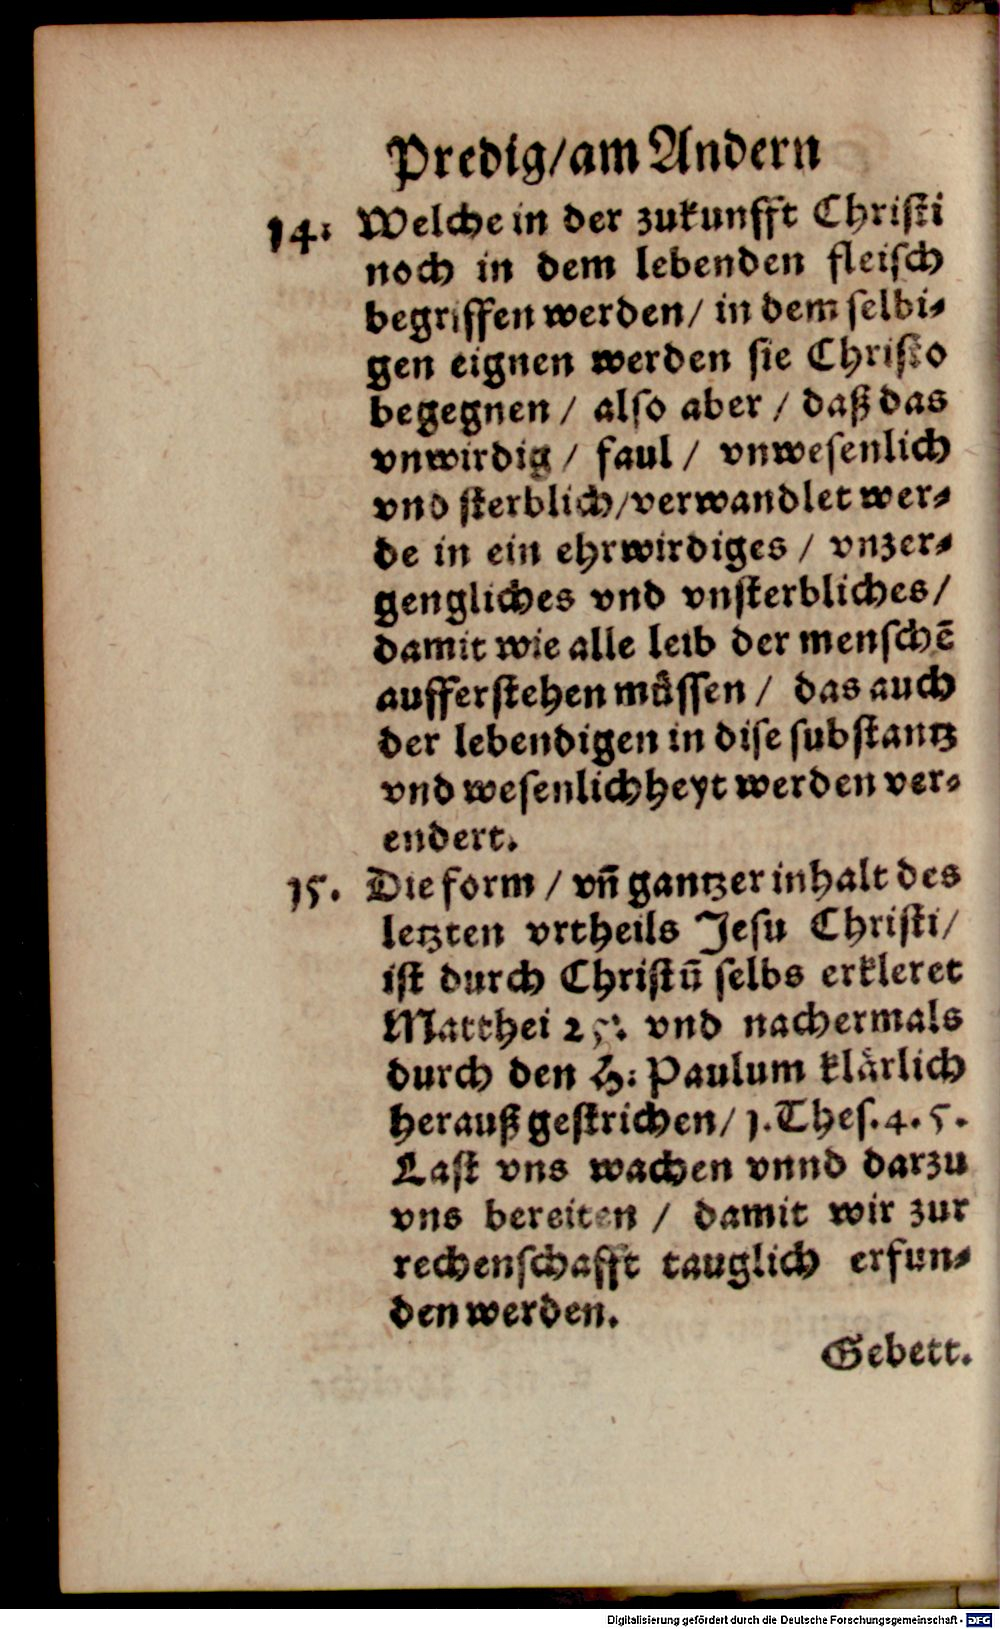 Predig/am Andern
14: Welche in der zukunfft Christi
noch in dem lebenden fleisch
begriffen werden/ in dem selbi⸗
gen eignen werden sie Christo
begegnen / also aber / daß das
vnwirdig / faul / vnwesenlich
vnd sterblich/verwandlet wer⸗
de in ein ehrwirdiges / vnzer⸗
gengliches vnd vnsterbliches/
damit wie alle leib der menschẽ
aufferstehen muͤssen / das auch
der lebendigen in dise substantz
vnd wesenlichheyt werden ver⸗
endert.
15. Die form / vñ gantzer inhalt des
letzten vrtheils Jesu Christi/
ist durch Christũ selbs erkleret
Matthei 25: vnd nachermals
durch den H: Paulum klaͤrlich
herauß gestrichen/ 1. Thes. 4. 5.
Last vns wachen vnnd darzu
vns bereiten / damit wir zur
rechenschafft tauglich erfun⸗
den werden.
Gebett.
Digitalisierung gefördert durch die Deutsche Forschungsgemeinschaft - DFG